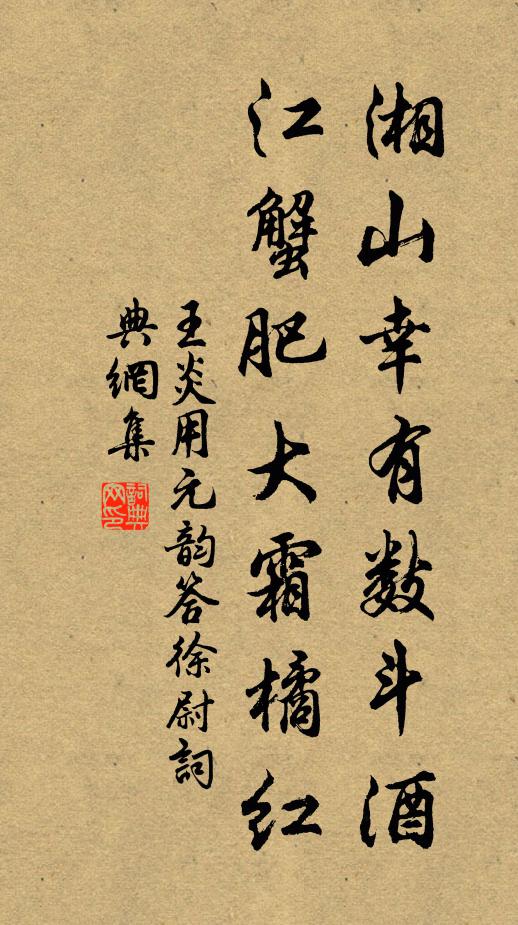 湘山幸有数斗酒
江蟹肥大霜橘红
王炎用元韵答徐尉詞
典網集
詞典网印